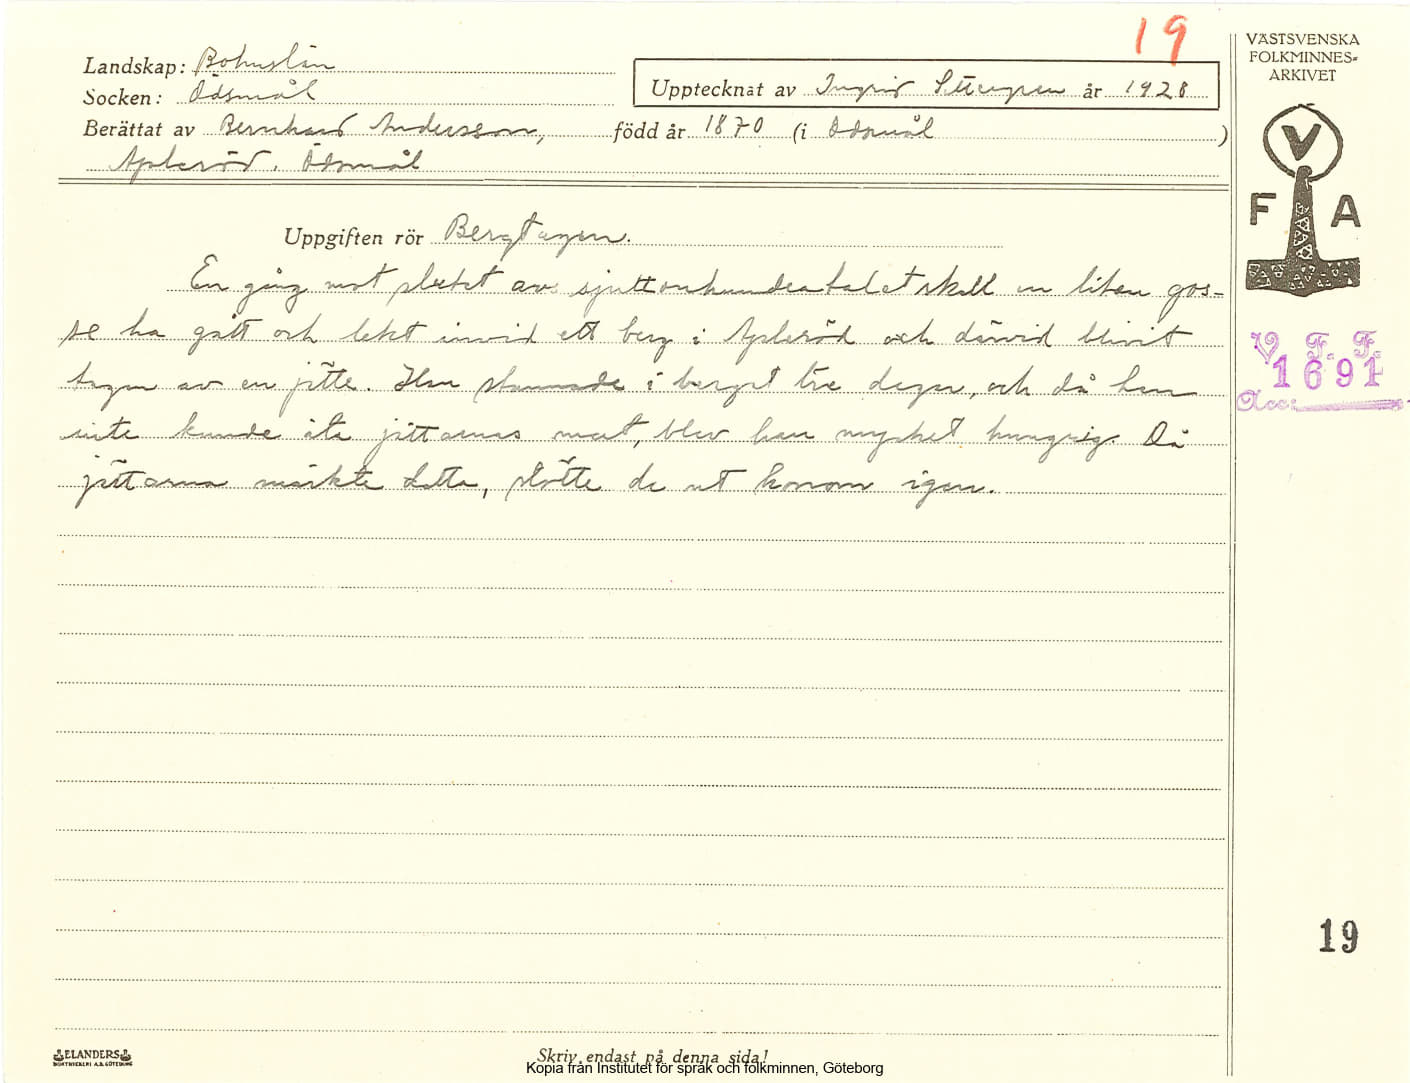 19
VÄSTSVENSKA
FOLKMINNES=
ARKIVET
Landskap: Bohuslän
Socken: Ödsmål
Upptecknat av Ingrid år 1928
Berättat av Bernhard Andersson, född år 1870 (i Ödsmål)
Apleröd. Ödsmål
V
F A
Uppgiften rör Bergtagen.
En gång mot slutet av sjuttonhundratalet skall en liten gos-
se ha gått och lekt invid ett berg i Apleröd och därvid blivit
tagen av en jätte. Han stannade i berget tre dagar, och då han
inte kunde äta jättarnas mat, blev han mycket hungrig. Då
jättarna märkte detta, släppte de ut honom igen.
V. F. F.
1691
Acc:
19
ELANDERS
BOKTRYCKERI A.B. GÖTEBORG
Skriv endast på denna sida!
Kopia från Institutet för språk och folkminnen, Göteborg